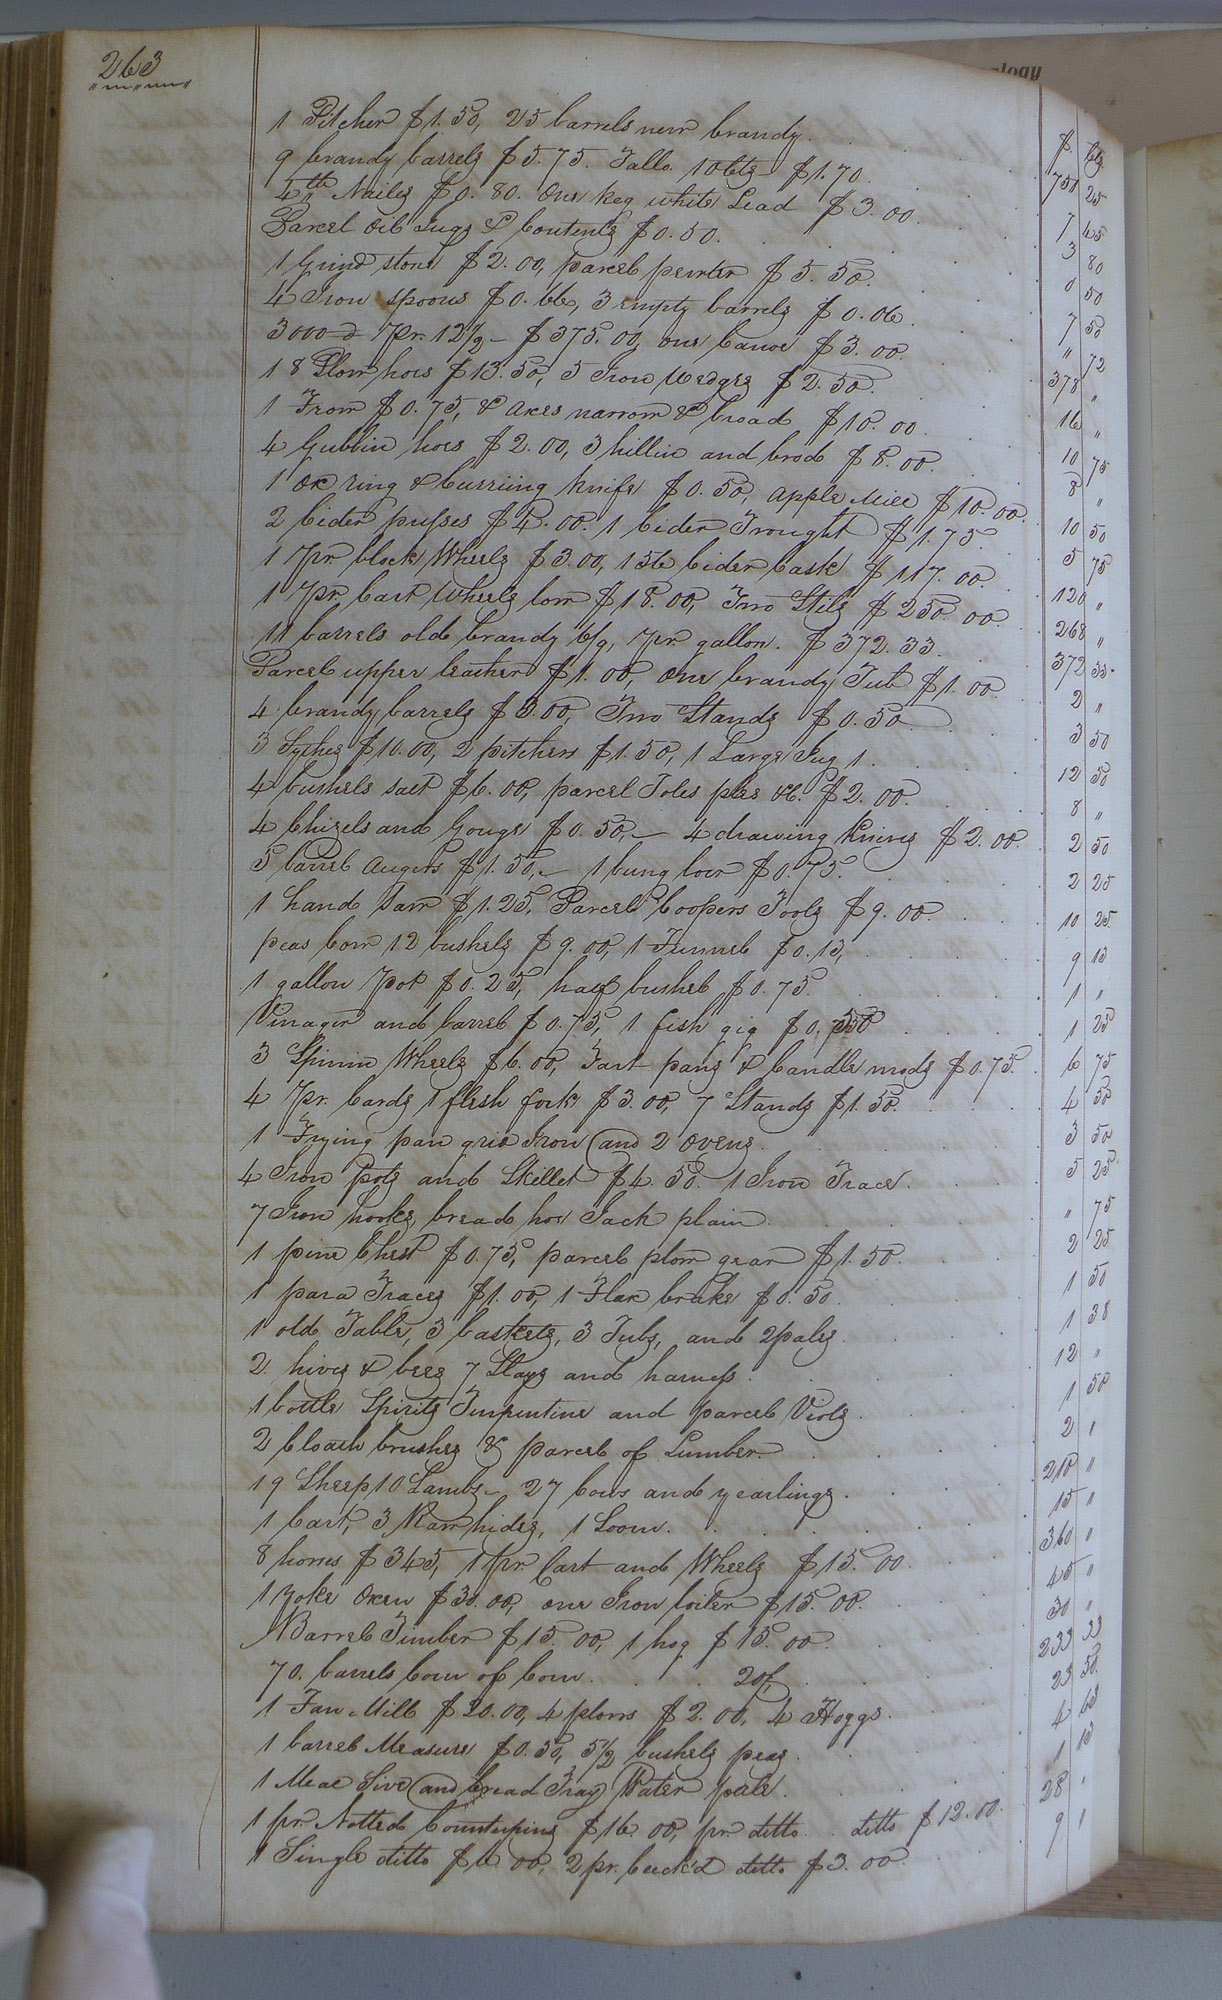 263
ology
$ Cts
1 Pitcher $1.50, 25 barrels new brandy. 751 25
9 brandy barrels $5.75. Tallo 10 lbs $1.70 7 45
4 lb Nails $0.80. One keg white Lead $3.00 3 80
Parcel Oil Jugs & Contents $0.50. " 50
1 Grind stone $2.00, parcel pewter $5.50. 7 50
4 Iron spoons $0.66, 3 empty barrels $0.06. " 72
3000 pr. 12½ - $375.00, one Canoe $3.00. 378 "
18 Plow hoes $13.50, 5 Iron Wedges $2.50. 16 "
1 From $0.75, & axes narrow & broad $10.00 10 75
4 Gubbin hoes $2.00, 3 hillin and brod $8.00. 8 "
1 Ox ring & Curriing knife $0.50, apple Mill $10.00. 10 50
2 Cider presses $4.00. 1 Cider Trought $1.75. 5 75
1 pr. block Wheels $3.00, 156 Cider Cask $117.00. 120 "
1 pr. Cart Wheels low $18.00, Two Stils $250.00. 268 "
11 barrels old brandy 6/9, pr. gallon. $372.33. 372 33.
Parcel upper leather $1.00, One brandy Tub $1.00. 2 "
4 brandy barrels $3.00, Two Stands $0.50 3 50
3 Sythes $10.00, 2 pitchers $1.50, 1 Large Jug 1. 12 50
4 bushels salt $6.00, parcel Toles &c. $2.00. 8 "
4 Chizels and Gouge $0.50, - 4 drawing Knives $2.00. 2 50
5 barrel augers $1.50, - 1 bung boer $0.75. 2 25
1 hand saw $1.25, Parcel Coopers Tools $9.00. 10 25
peas Corn 12 bushels $9.00, 1 Funnel $0.13, 9 13
1 gallon pot $0.25, half bushel $0.75. 1 "
Vinager and barrel $0.75, 1 fish gig $0.50 1 25
3 Spinin Wheels $6.00, Tart pans & Candle mods $0.75. 6 75
4 pr. Cards 1 flesh fork $3.00, 7 Stands $1.50. 4 50
1 Frying pan grid Iron and 2 ovens. 3 50
4 Iron pots and Skillet $4.50. 1 Iron Trace. 5 25.
7 Iron hooks, bread hoe Jack plain. " 75
1 pine Chest $0.75, parcel plow gear $1.50. 2 25
1 para Traces $1.00, 1 Flax brake $0.50. 1 50
1 old Table, 3 baskets, 3 Tubs, and 2 pales. 1 38
2 hives & bees 7 Slays and harness. 12 "
1 bottle Spirits Turpentine and parcel Viols. 1 50
2 Cloath brushes & parcel of Lumber. 2 "
19 Sheep 10 Lambs - 27 Cows and yearlings. 210 "
1 Cart, 3 Raw hides, 1 Loom. 15 "
8 horses $345, 1 pr. Cart and Wheels $15.00. 360 "
1 Yoke Oxen $30.00, one Iron boiler $15.00. 45 "
Barrel Timber $15.00, 1 hog $15.00. 30 "
70. barrels Corn of Corn. 20/ 233 33
1 Fan Mill $20.00, 4 plows $2.00, 4 Hoggs. 23 50.
1 barrel Measure $0.50, 5½ bushels peas. 4 63
1 Meal Sive and bread Tray Water pale. 1 13
1 pr. Notted Counterpins $16.00, pr. ditto. ditto $12.00. 28 "
1 Single ditto $6.00, 2 pr. ditto $3.00. 9 "